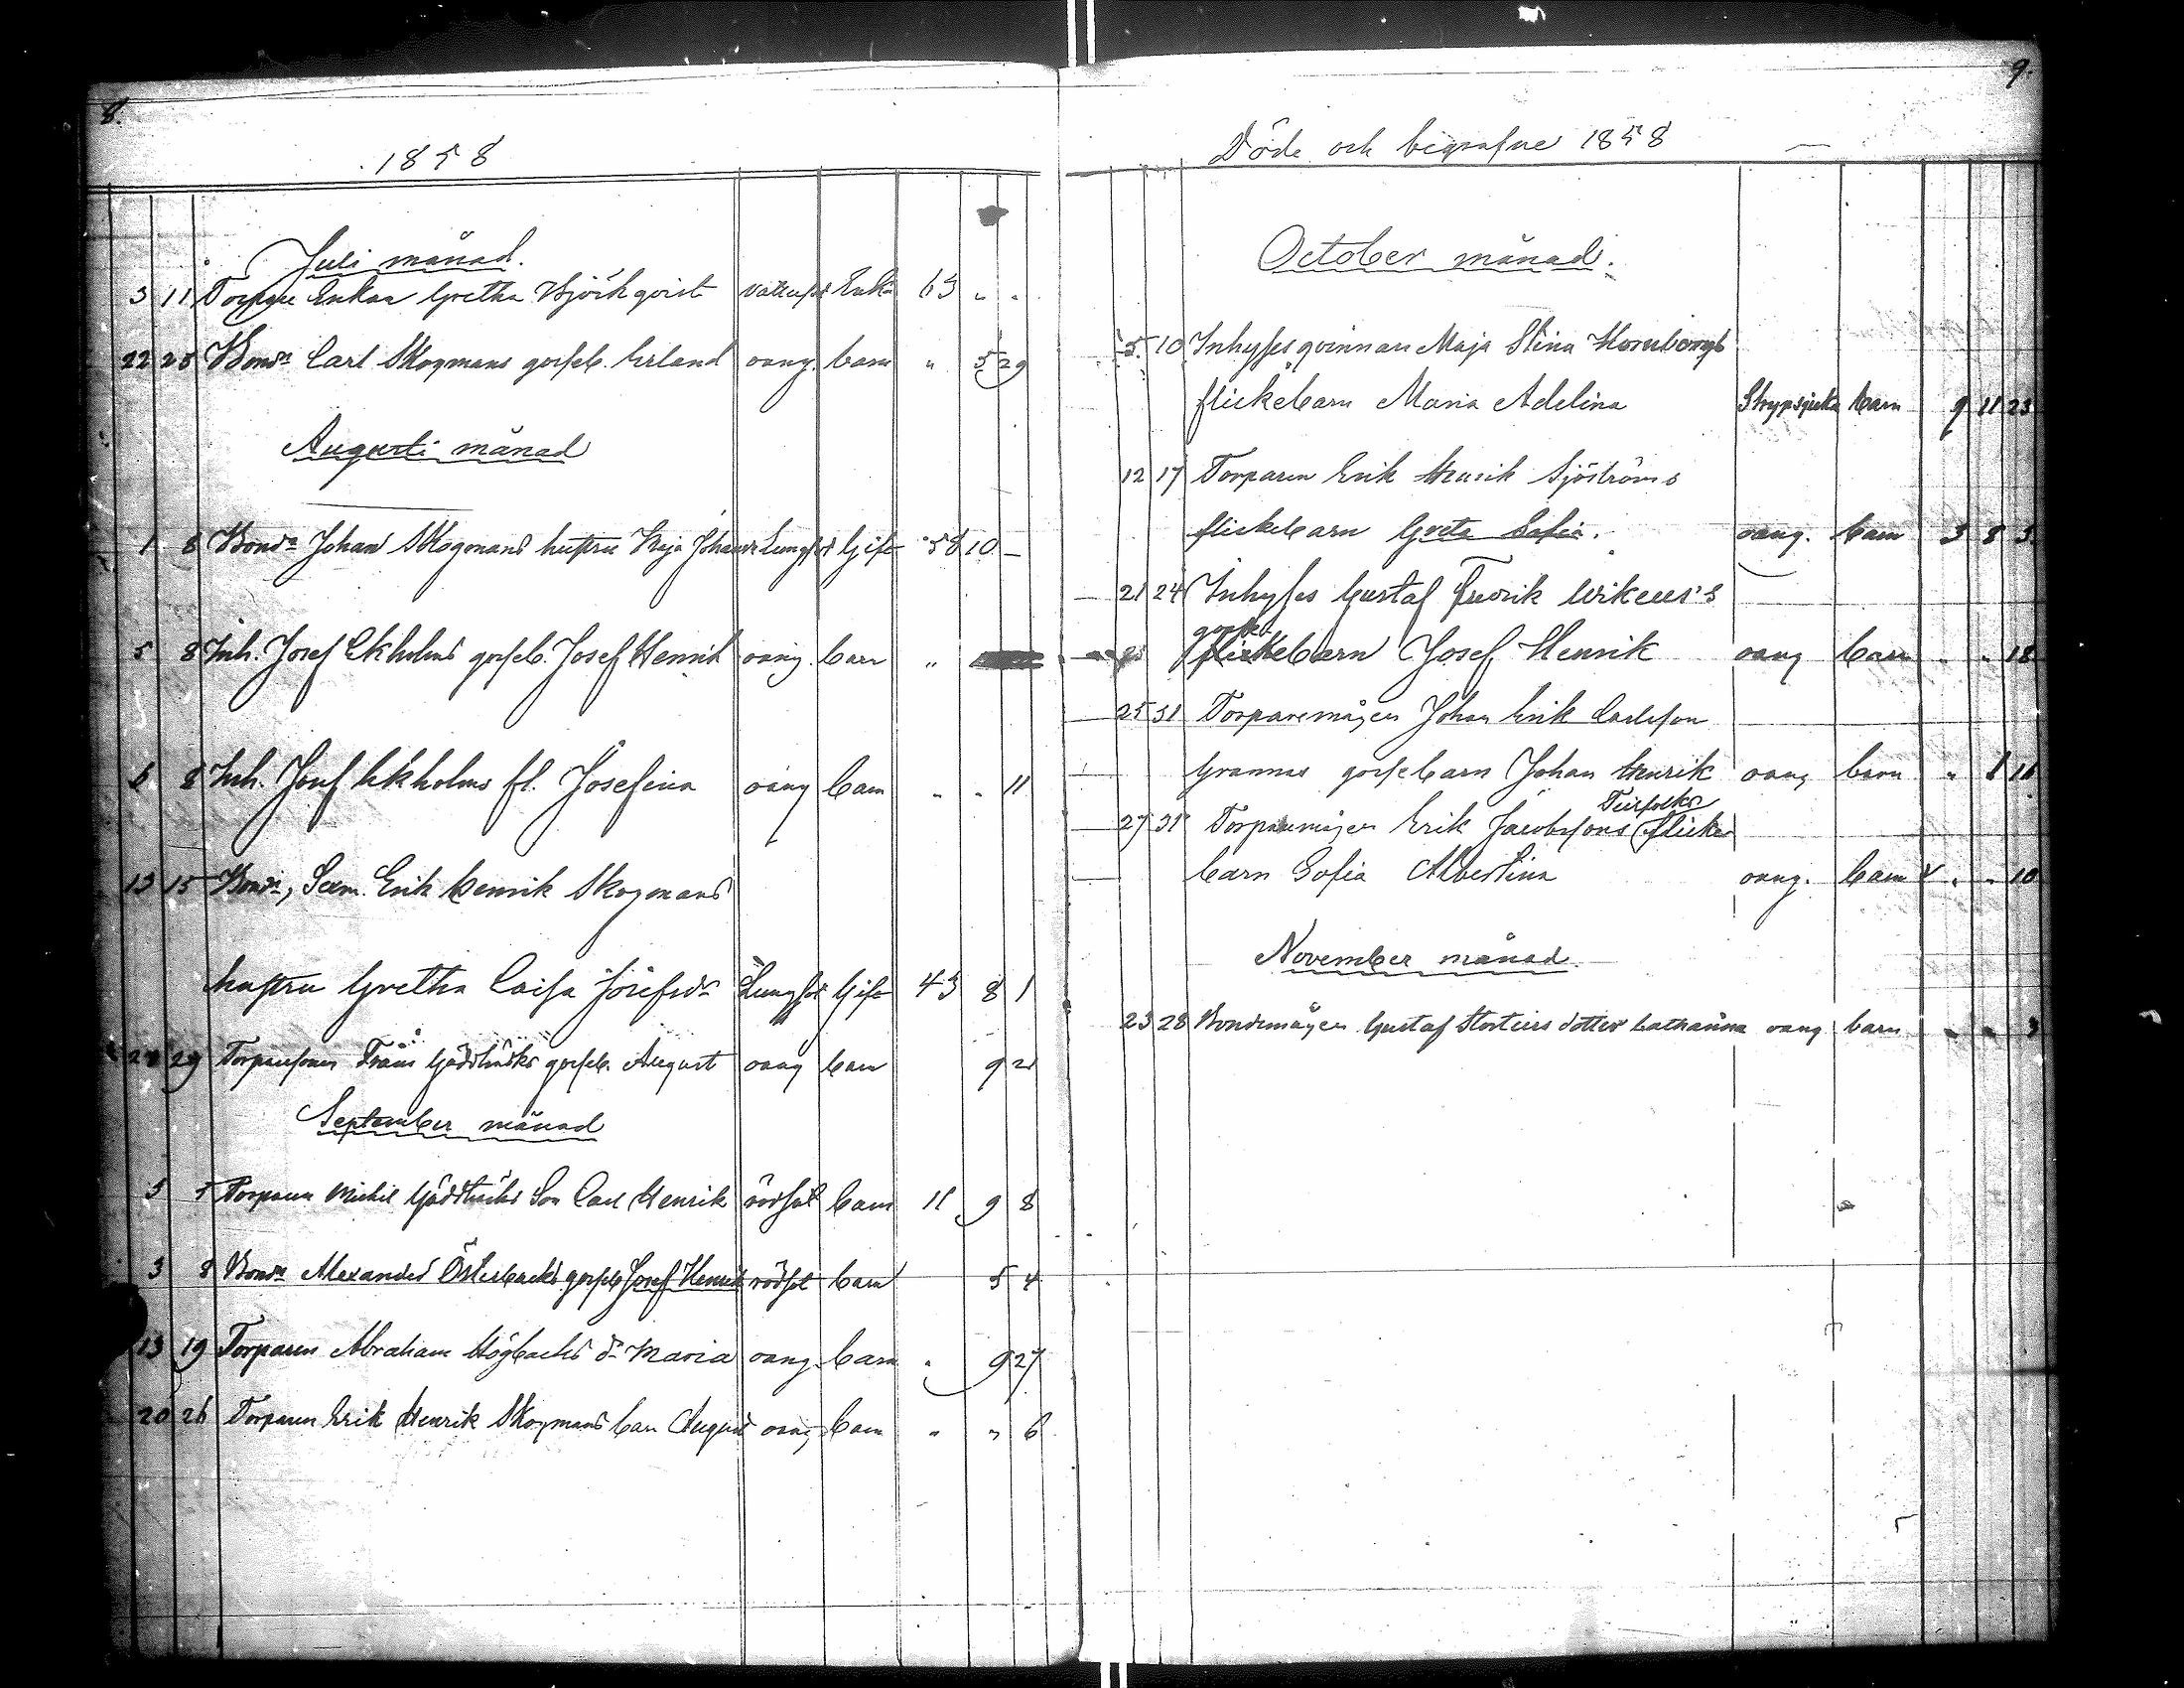 8.
1858
Juli månad.
3 11 Torpare Enkan Gretha Björkqvist vattusot Enka 63 " "
22 25 Bond. Carl Skogmans gosseb. Erland oang. barn " 5 29
Augusti månad
1 8 Bond. Johan Skogmans hustru Maja Johansdr Lungsot Gift 58 10 —
5 8 Inh. Josef Ekholms gosseb. Josef Henrik oang. barn "
6 8 Inh. Josef Ekholms fl. Josefina oang barn " " 11
13 15 Bond., Sexm. Erik Henrik Skogmans
hustru Gretha Caisa Josefsdr Lungsot Gift 43 8 1
29 Torparesonen Frans gosseb. August oang barn 9 21
September månad
3 5 Torparen Michel Son Carl Henrik rödsot barn 11 9 8
3 8 Bond. Alexander Österbacks gosseb. Josef Henrik rödsot barn 5 4
13 19 Torparen Abraham Högbacks dr Maria oang. barn " 9 27
20 26 Torparen Erik Henrik Skogmans barn August oang barn " " 6
9.
Döde och begrafne 1858
October månad.
5 10 Inhyses qvinnan Maja Stina
flickebarn Maria Adelina Strypsjuka barn 9 11 23
12 17 Torparen Erik Henrik Sjöströms
flickebarn Greta Sofia. oang. barn 3 8 3
21 24 Inhyses Gustaf Fredrik Wikeus's
gosse
flickebarn Josef Henrik oang barn " " 18
25 31 Torparemågen Johan Erik Carlsson
Grannas gossebarn Johan Henrik oang barn " 1 16
27 31 Torparemågen Erik Jacobssons flicke
barn Sofia Albertina oang. barn " " 10
November månad.
23 28 Bondemågen Gustaf Storteirs dotter Catharina oang barn " " 3